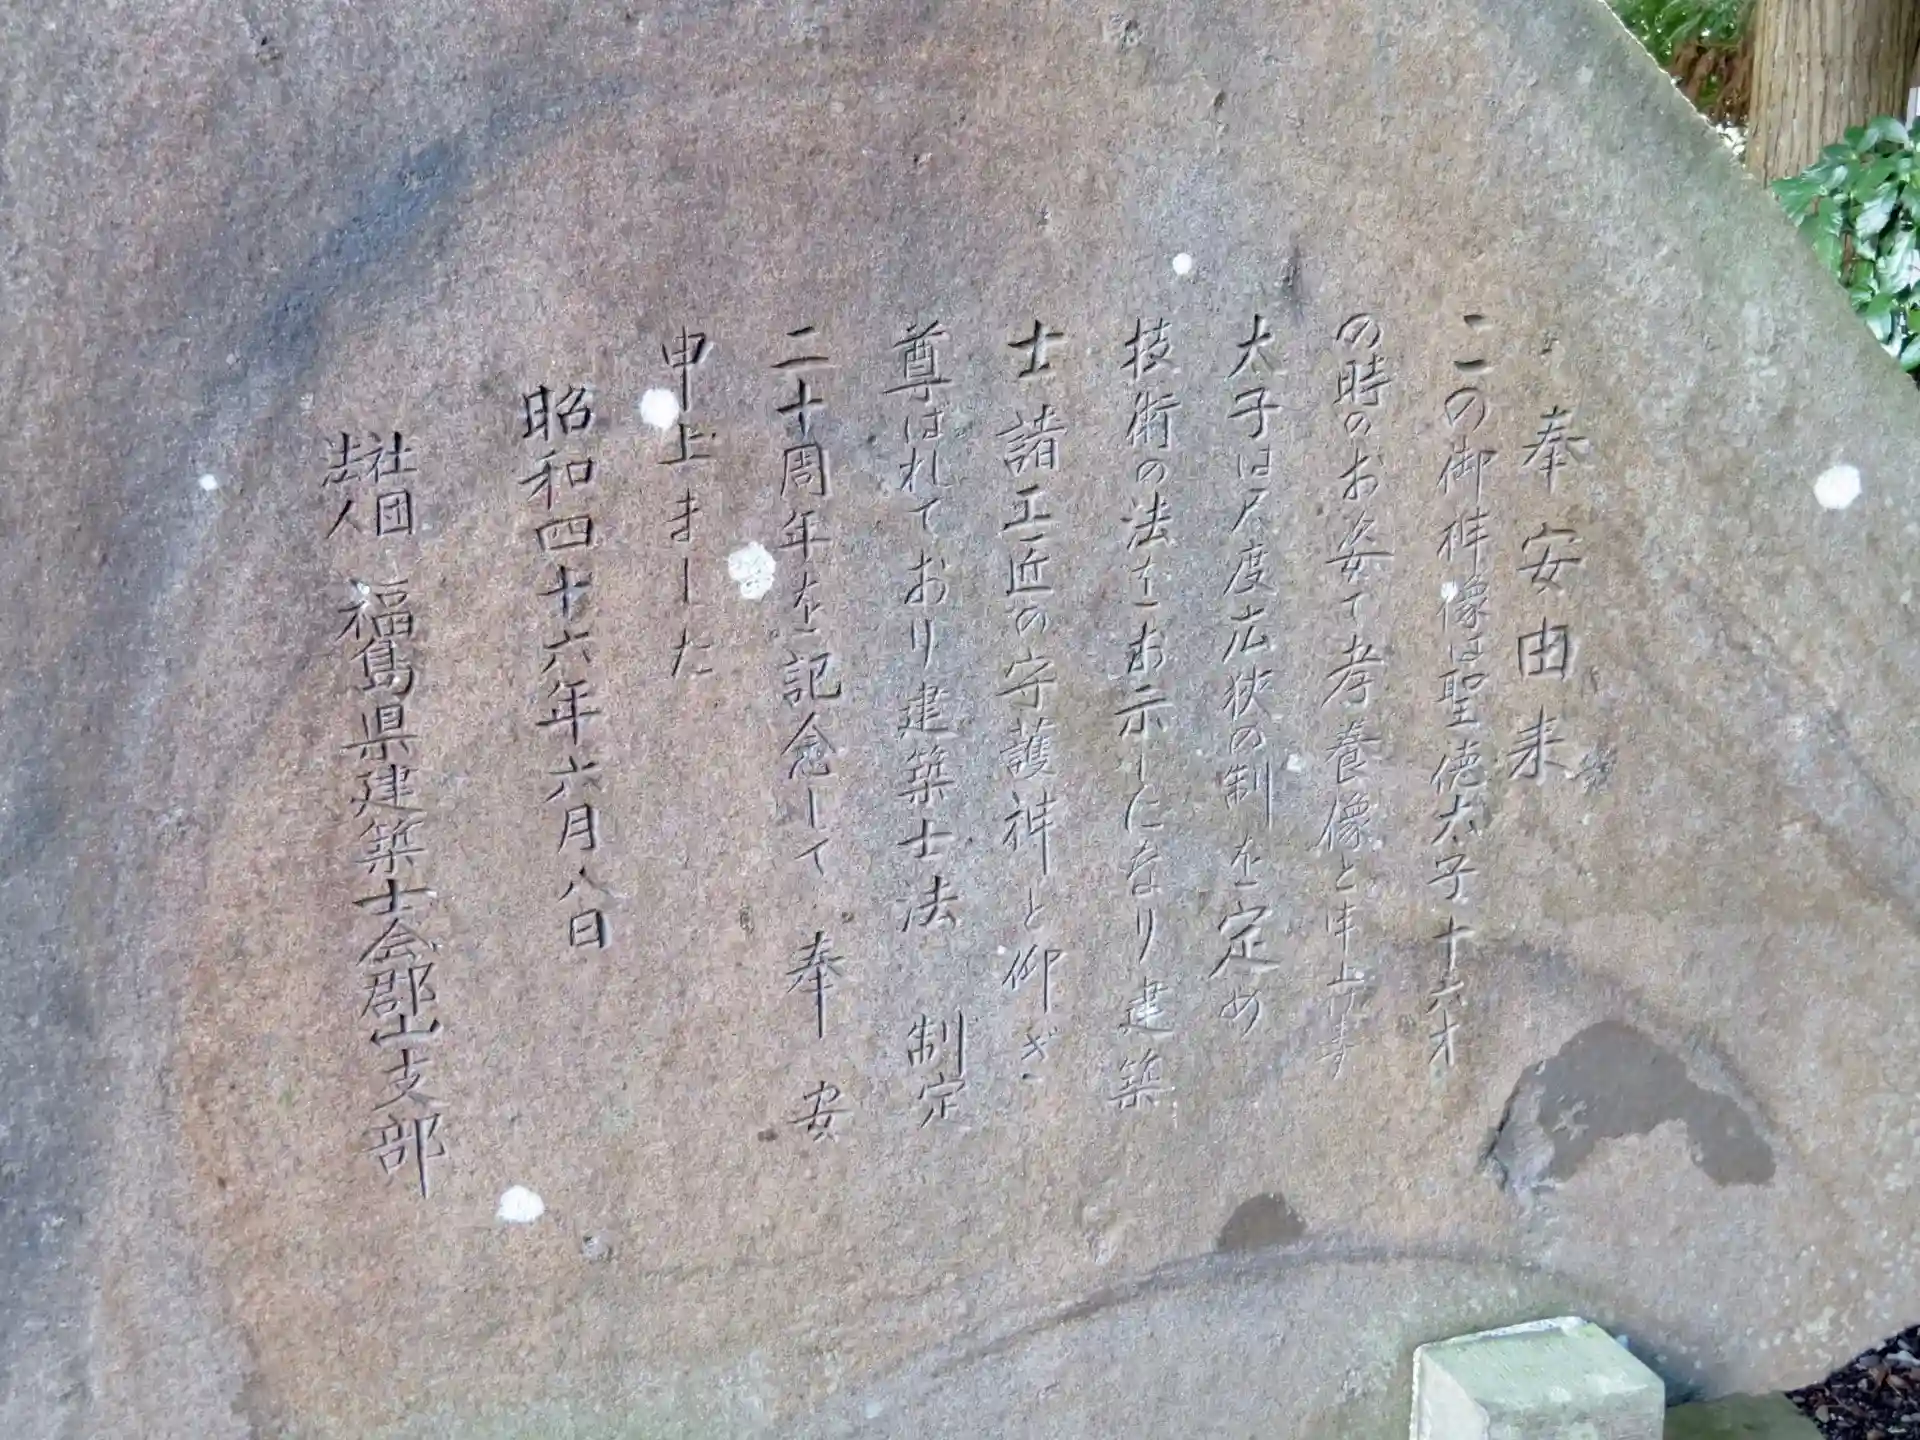 奉安由来
この御神像は聖徳太子十六才
の時のお姿で孝養像と申上げます
太子は尺度広狭の制を定め
技術の法をお示しになり建築
士諸工匠の守護神と仰ぎ
尊ばれており建築士法制定
二十周年を記念して奉安
申上ました
昭和四十六年六月八日
社団法人 福島県建築士会郡山支部